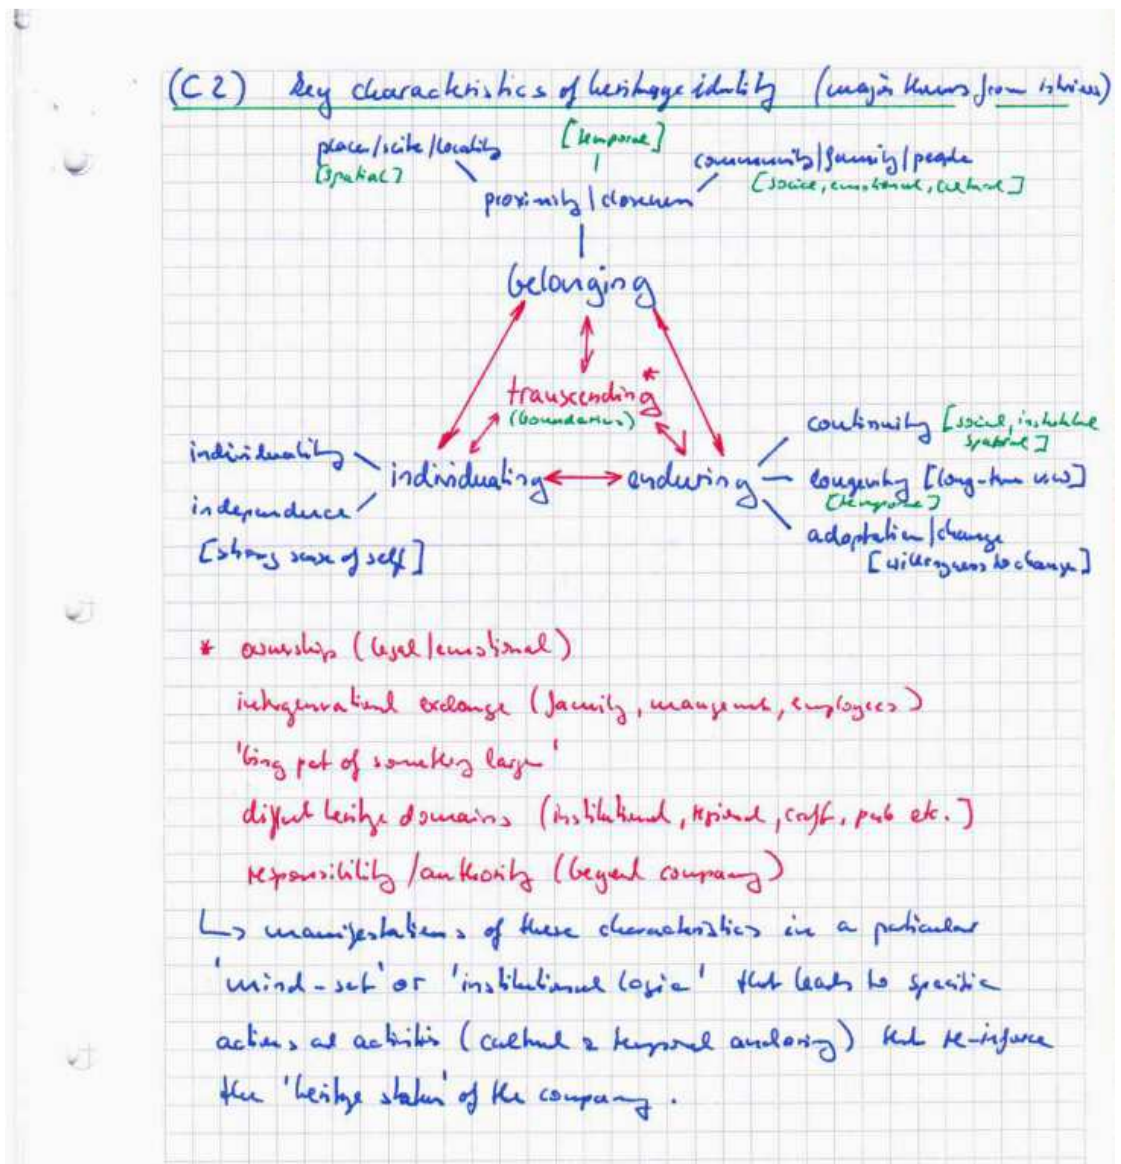 (C2) Key characteristics of heritage identity (major themes from interviews)
[temporal]
place/site/locality
community/family/people
[spatial]
[social, emotional, cultural]
proximity/closeness
belonging
transcending *
(boundaries)
continuity [social, institutional
spatial]
individuality
individuating
enduring
longevity [long-term view]
[temporal]
independence
adaptation/change
[willingness to change]
[strong sense of self]
* ownership (legal/emotional)
intergenerational exchange (family, management, employees)
'being part of something larger'
different heritage domains (institutional, regional, craft, etc.]
responsibility/authority (beyond company)
↳ manifestations of these characteristics in a particular
'mind-set' or 'institutional logic' that leads to specific
actions and activities (cultural & temporal anchoring) that re-inforce
the 'heritage status' of the company.